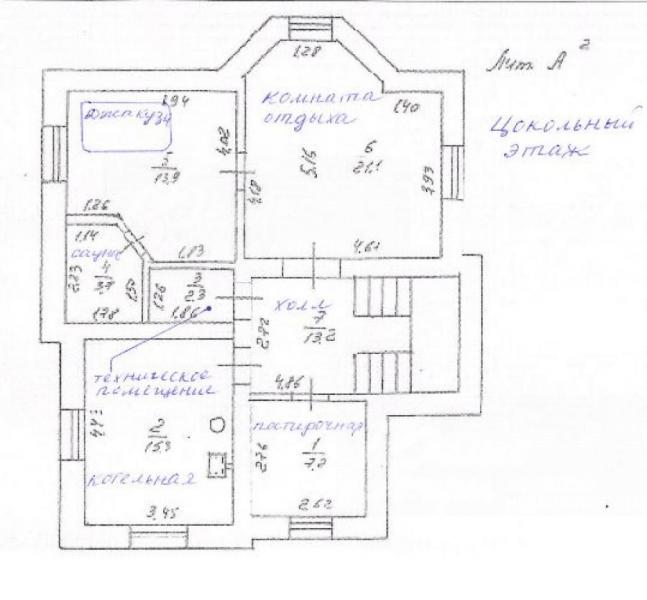 1.28
Лит А 2
1.94
комната
отдыха
1.40
джакузи
Цокольный
этаж
4.02
5
13.9
5.15
6
21.1
3.93
4.18
1.26
1.14
1.83
4.61
сауна
4
3.7
2.23
1.78
1.26
3
2.3
1.86
холл
7
13.2
2.72
4.86
техническое
помещение
4.43
2
15.3
постирочная
1
7.2
2.76
котельная
3.45
2.62